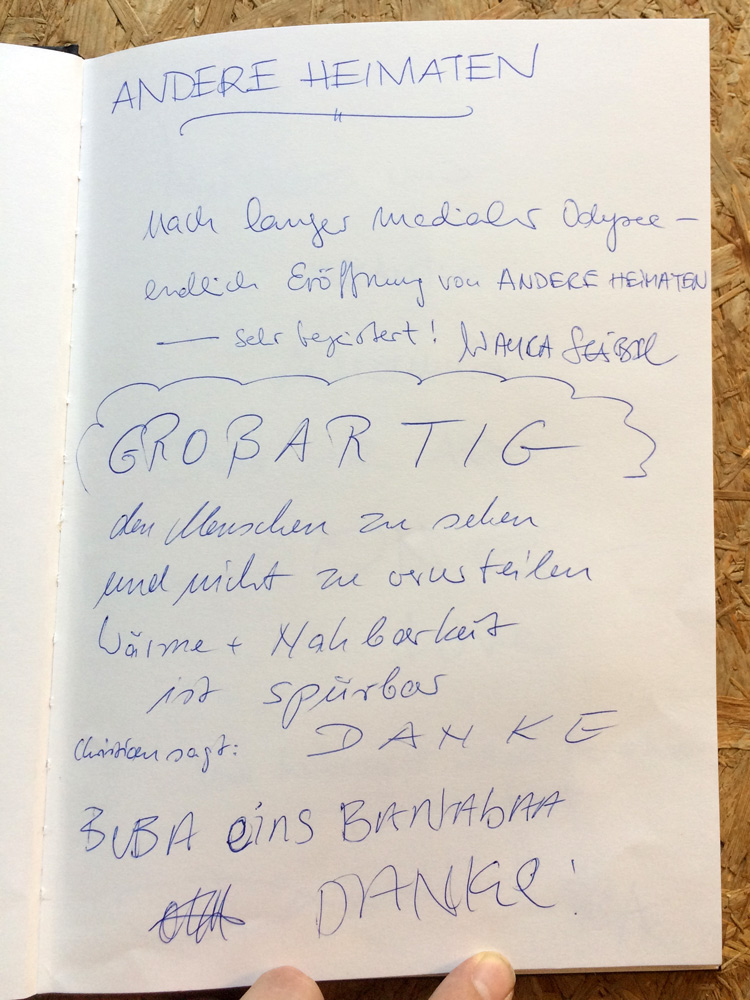 ANDERE HEIMATEN
Nach langer medialer Odysee –
endlich Eröffnung von ANDERE HEIMATEN
— sehr begeistert!
GROßARTIG
den Menschen zu sehen
und nicht zu verurteilen
Wärme + Nahbarkeit
ist spürbar
Christian sagt: DANKE
BUBA eins BANTABAA
DANKE!